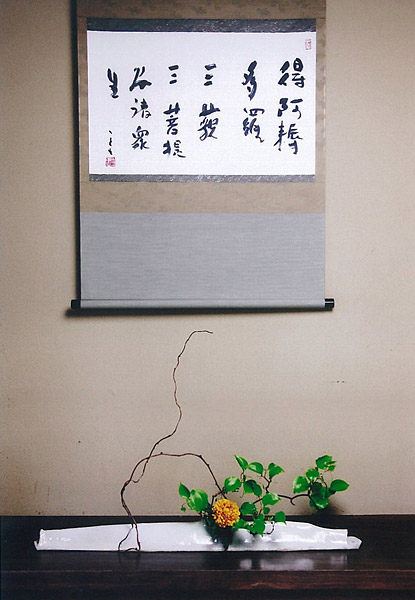 得阿耨
多羅
三藐
三菩提
諸衆
生